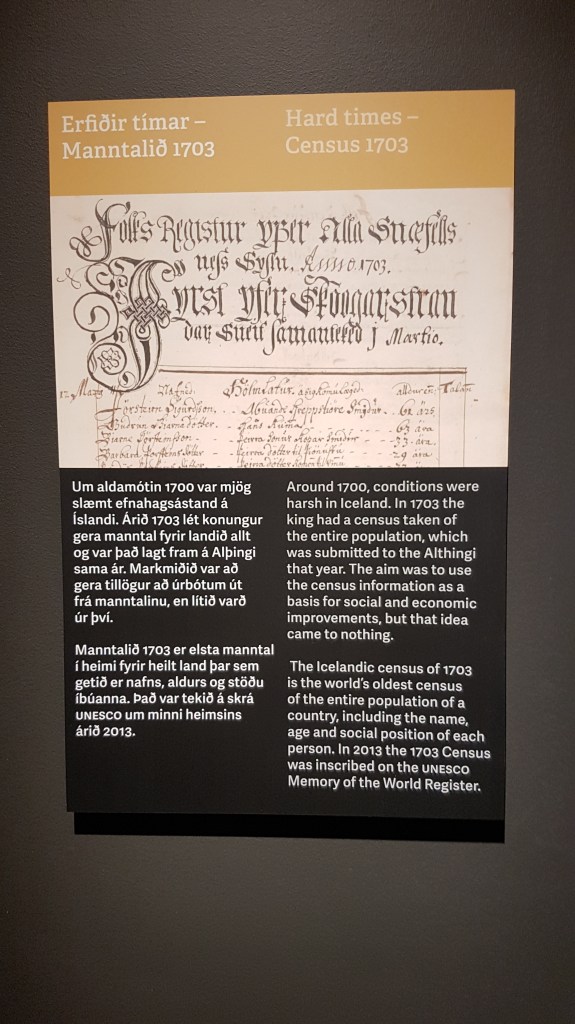 Erfiðir tímar –
Manntalið 1703
Hard times –
Census 1703
Folks Registur yfer Alla Snæfells
ness Syslu. Anno 1703.
Fyrst yfer Skoogarstran
dar Sueit samanteked j Martio.
12 Marty
Hölmlatur.
Talam
Þorsteirn Sigurdsson.
Gudrun Biarnadotter
Biarne
Barbara
29 ära
Um aldamótin 1700 var mjög
slæmt efnahagsástand á
Íslandi. Árið 1703 lét konungur
gera manntal fyrir landið allt
og var það lagt fram á Alþingi
sama ár. Markmiðið var að
gera tillögur að úrbótum út
frá manntalinu, en lítið varð
úr því.
Manntalið 1703 er elsta manntal
í heimi fyrir heilt land þar sem
getið er nafns, aldurs og stöðu
íbúanna. Það var tekið á skrá
UNESCO um minni heimsins
árið 2013.
Around 1700, conditions were
harsh in Iceland. In 1703 the
king had a census taken of
the entire population, which
was submitted to the Althingi
that year. The aim was to use
the census information as a
basis for social and economic
improvements, but that idea
came to nothing.
The Icelandic census of 1703
is the world's oldest census
of the entire population of a
country, including the name,
age and social position of each
person. In 2013 the 1703 Census
was inscribed on the UNESCO
Memory of the World Register.